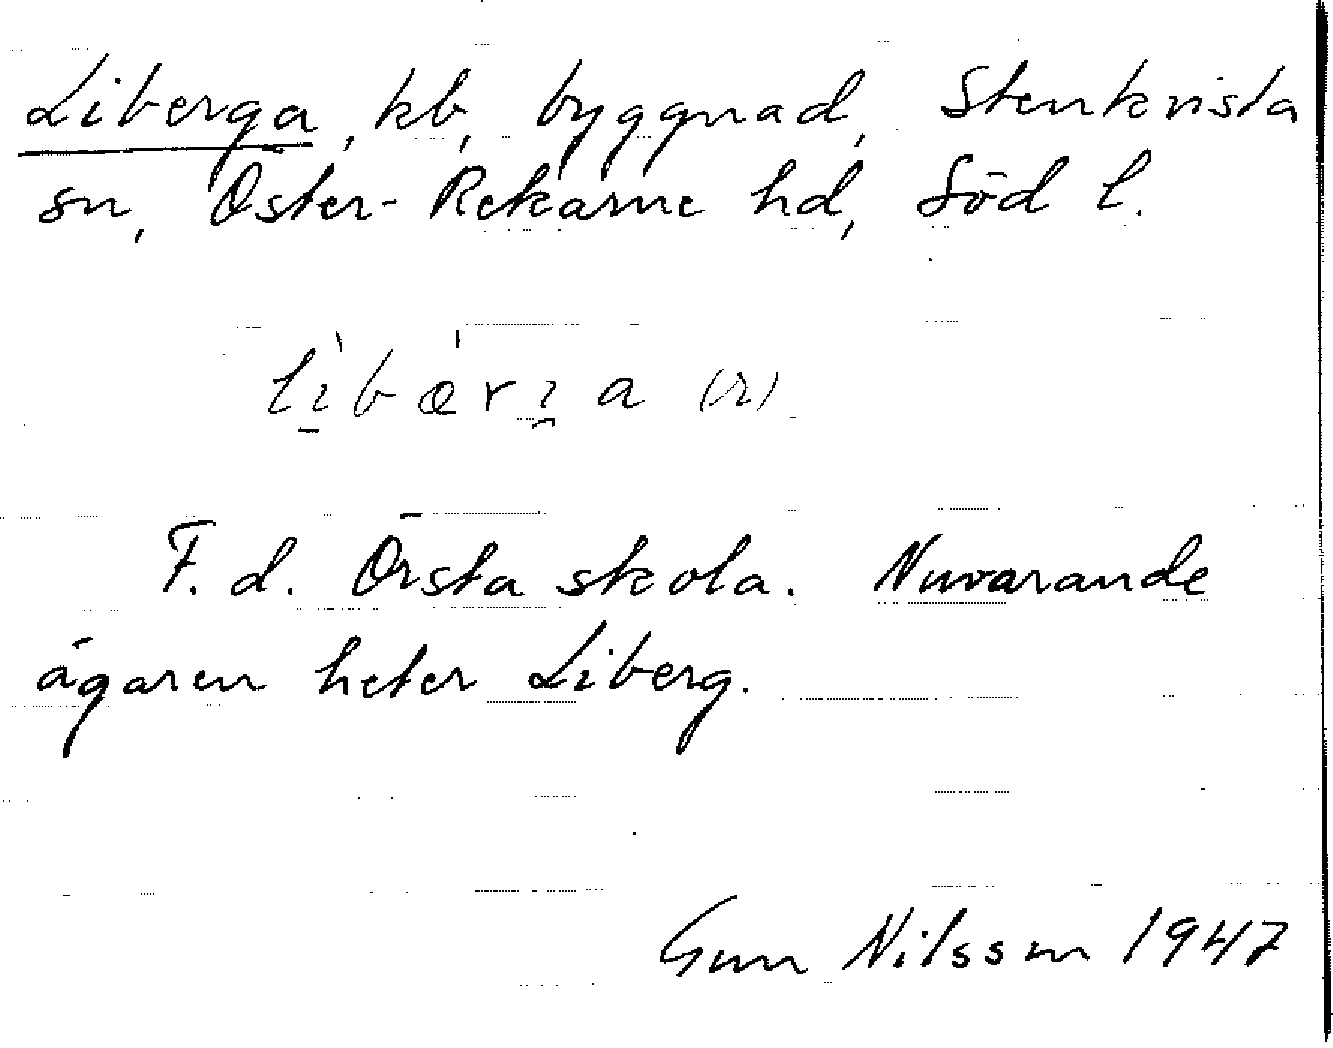 Liberga, kb, byggnad, Stenkvista
sn, Öster-Rekarne hd, Söd l.
F. d. Örsta skola. Nuvarande
ägaren heter Liberg.
Gun Nilsson 1947